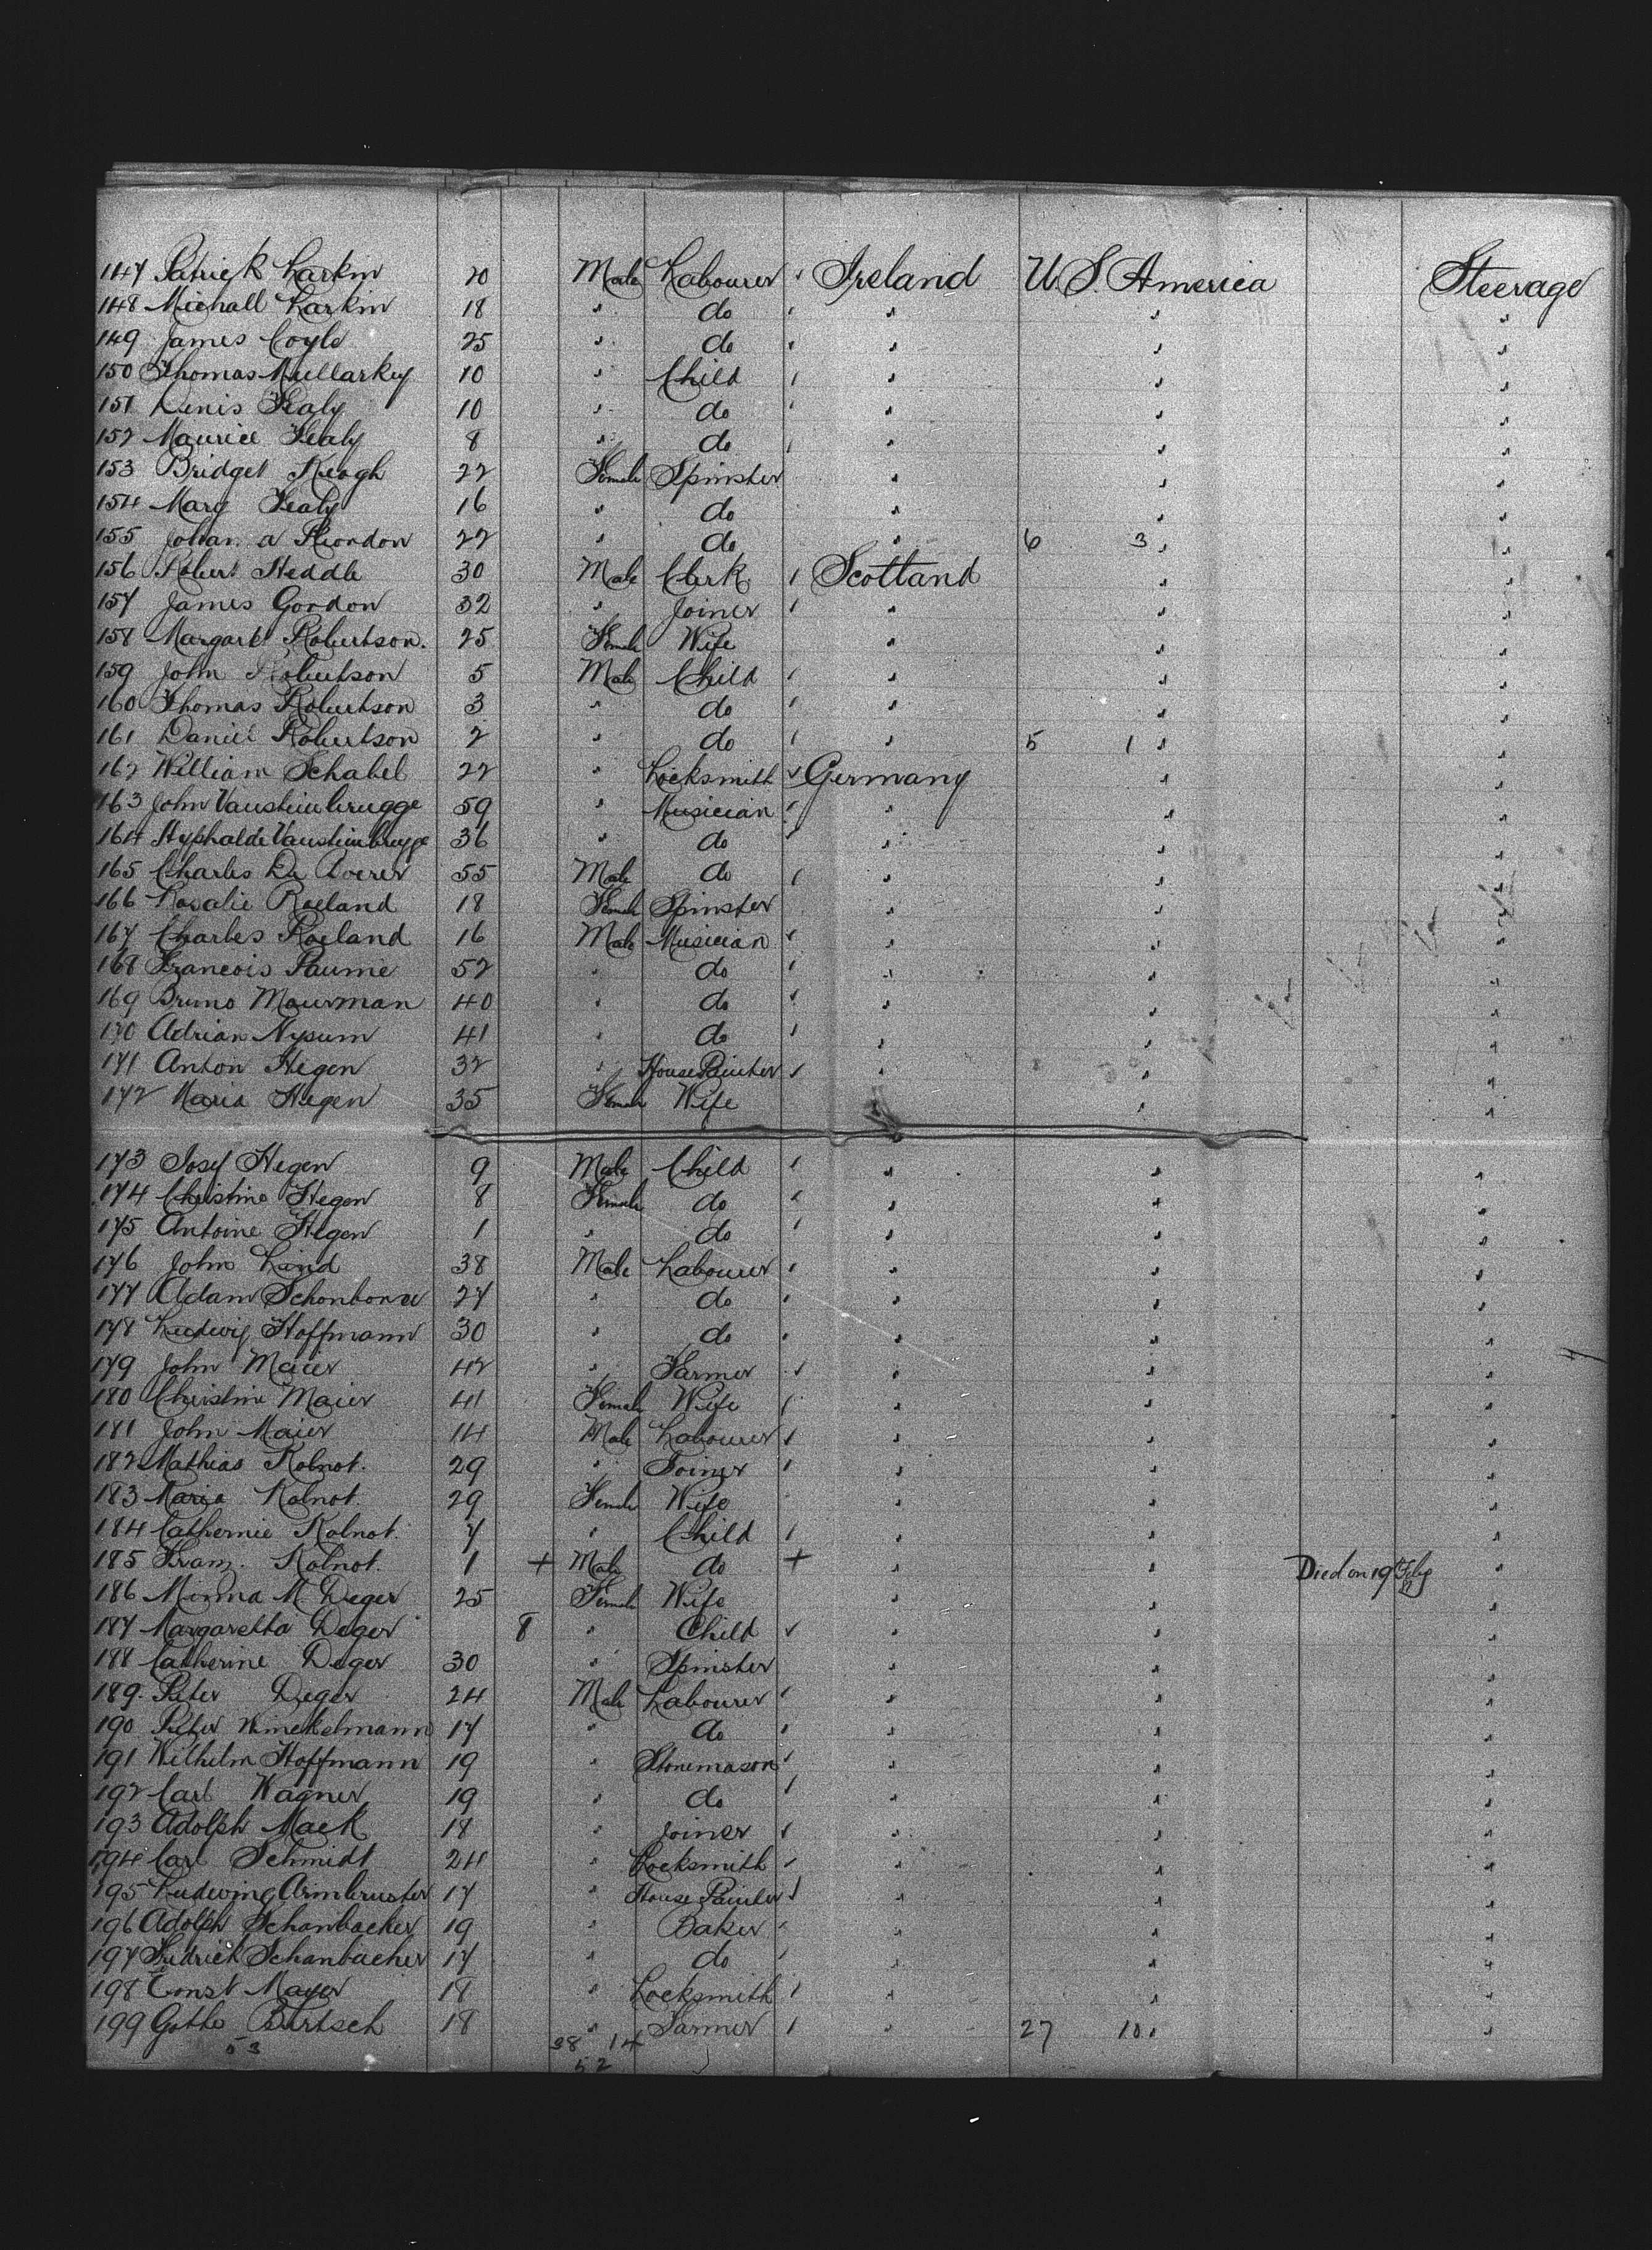 147 Patrick Larkin 20 Male Labourer Ireland U.S. America Steerage
148 Michall Larkin 18 " do " " "
149 James Coyle 25 " do " " "
150 Thomas Mullarkey 10 " Child " " "
151 Denis Healy 10 " do " " "
152 Maurice Healy 8 " do " " "
153 Bridget Keogh 22 Female Spinster " " "
154 Mary Healy 16 " do " " "
155 Johan. a Riordon 22 " do " 6 3 " "
156 Robert Heddle 30 Male Clerk Scotland " "
157 James Gordon 32 " Joiner " " "
158 Margaret Robertson. 25 Female Wife " " "
159 John Robertson 5 Male Child " " "
160 Thomas Robertson 3 " do " " "
161 Daniel Robertson 2 " do " 5 1 " "
162 William Schabel 22 " Locksmith Germany " "
163 John Vansteinbrugge 59 " Musician " " "
164 Vansteinbrugge 36 " do " " "
165 Charles De 55 Male do " " "
166 Rosalie Roeland 18 Female Spinster " " "
167 Charles Roeland 16 Male Musician " " "
168 Francois Paume 52 " do " " "
169 Bruno Mourman 40 " do " " "
170 Adrian Nysum 41 " do " " "
171 Anton Hegen 32 " House Painter " " "
172 Maria Hegen 35 Female Wife " " "
173 Josef Hegen 9 Male Child " " "
174 Christine Hegen 8 Female do " " "
175 Antoine Hegen 1 " do " " "
176 John Lind 38 Male Labourer " " "
177 Adam Schonborn 27 " do " " "
178 Ludwig Hoffmann 30 " do " " "
179 John Maier 42 " Farmer " " "
180 Christine Maier 41 Female Wife " " "
181 John Maier 14 Male Labourer " " "
182 Mathias Kolnot. 29 " Joiner " " "
183 Maria Kolnot. 29 Female Wife " " "
184 Catherine Kolnot. 7 " Child " " "
185 Franz. Kolnot. 1 + Male do + " " Died on 19th Feby "
186 Minna M. Deger 25 Female Wife " " "
187 Margaretta Deger 8 " Child " " "
188 Catherine Deger 30 " Spinster " " "
189. Peter Deger 24 Male Labourer " " "
190 Peter Winckelmann 17 " do " " "
191 Wilhelm Hoffmann 19 " Stonemason " " "
192 Carl Wagner 19 " do " " "
193 Adolph Mack 18 " Joiner " " "
194 Carl Schmidt 24 " Locksmith " " "
195 Ludewing Armbruster 17 " House Painter " " "
196 Adolph Schanbacker 19 " Baker " " "
197 Fredrick Schanbacher 17 " do " " "
198 Ernst Mayer 18 " Locksmith " " "
199 Gotho Bertsch 18 " Farmer " 27 10 " "
53 38 14
52